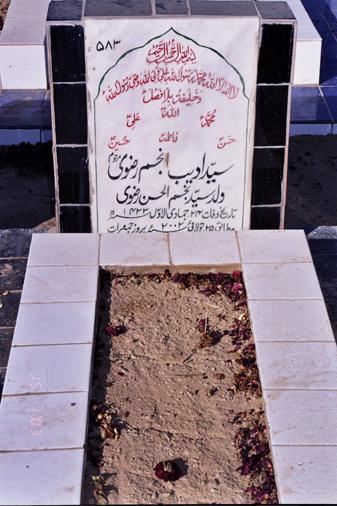 ۵۸۳
بسم الله الرحمن الرحیم
لا اله الا الله محمد رسول الله علی ولی الله وصی رسول الله
و خلیفتہ بلا فصل
الله
محمدؐ
علیؑ
فاطمہؑ
حسنؑ
حسینؑ
سید ادیب انجم رضوی مرحوم
ولد سید نجم الحسن رضوی
تاریخ وفات ۲۴ جمادی الاول ۱۴۲۳ھ
مطابق ۲۵ جولائی ۲۰۰۲ء بروز جمعرات